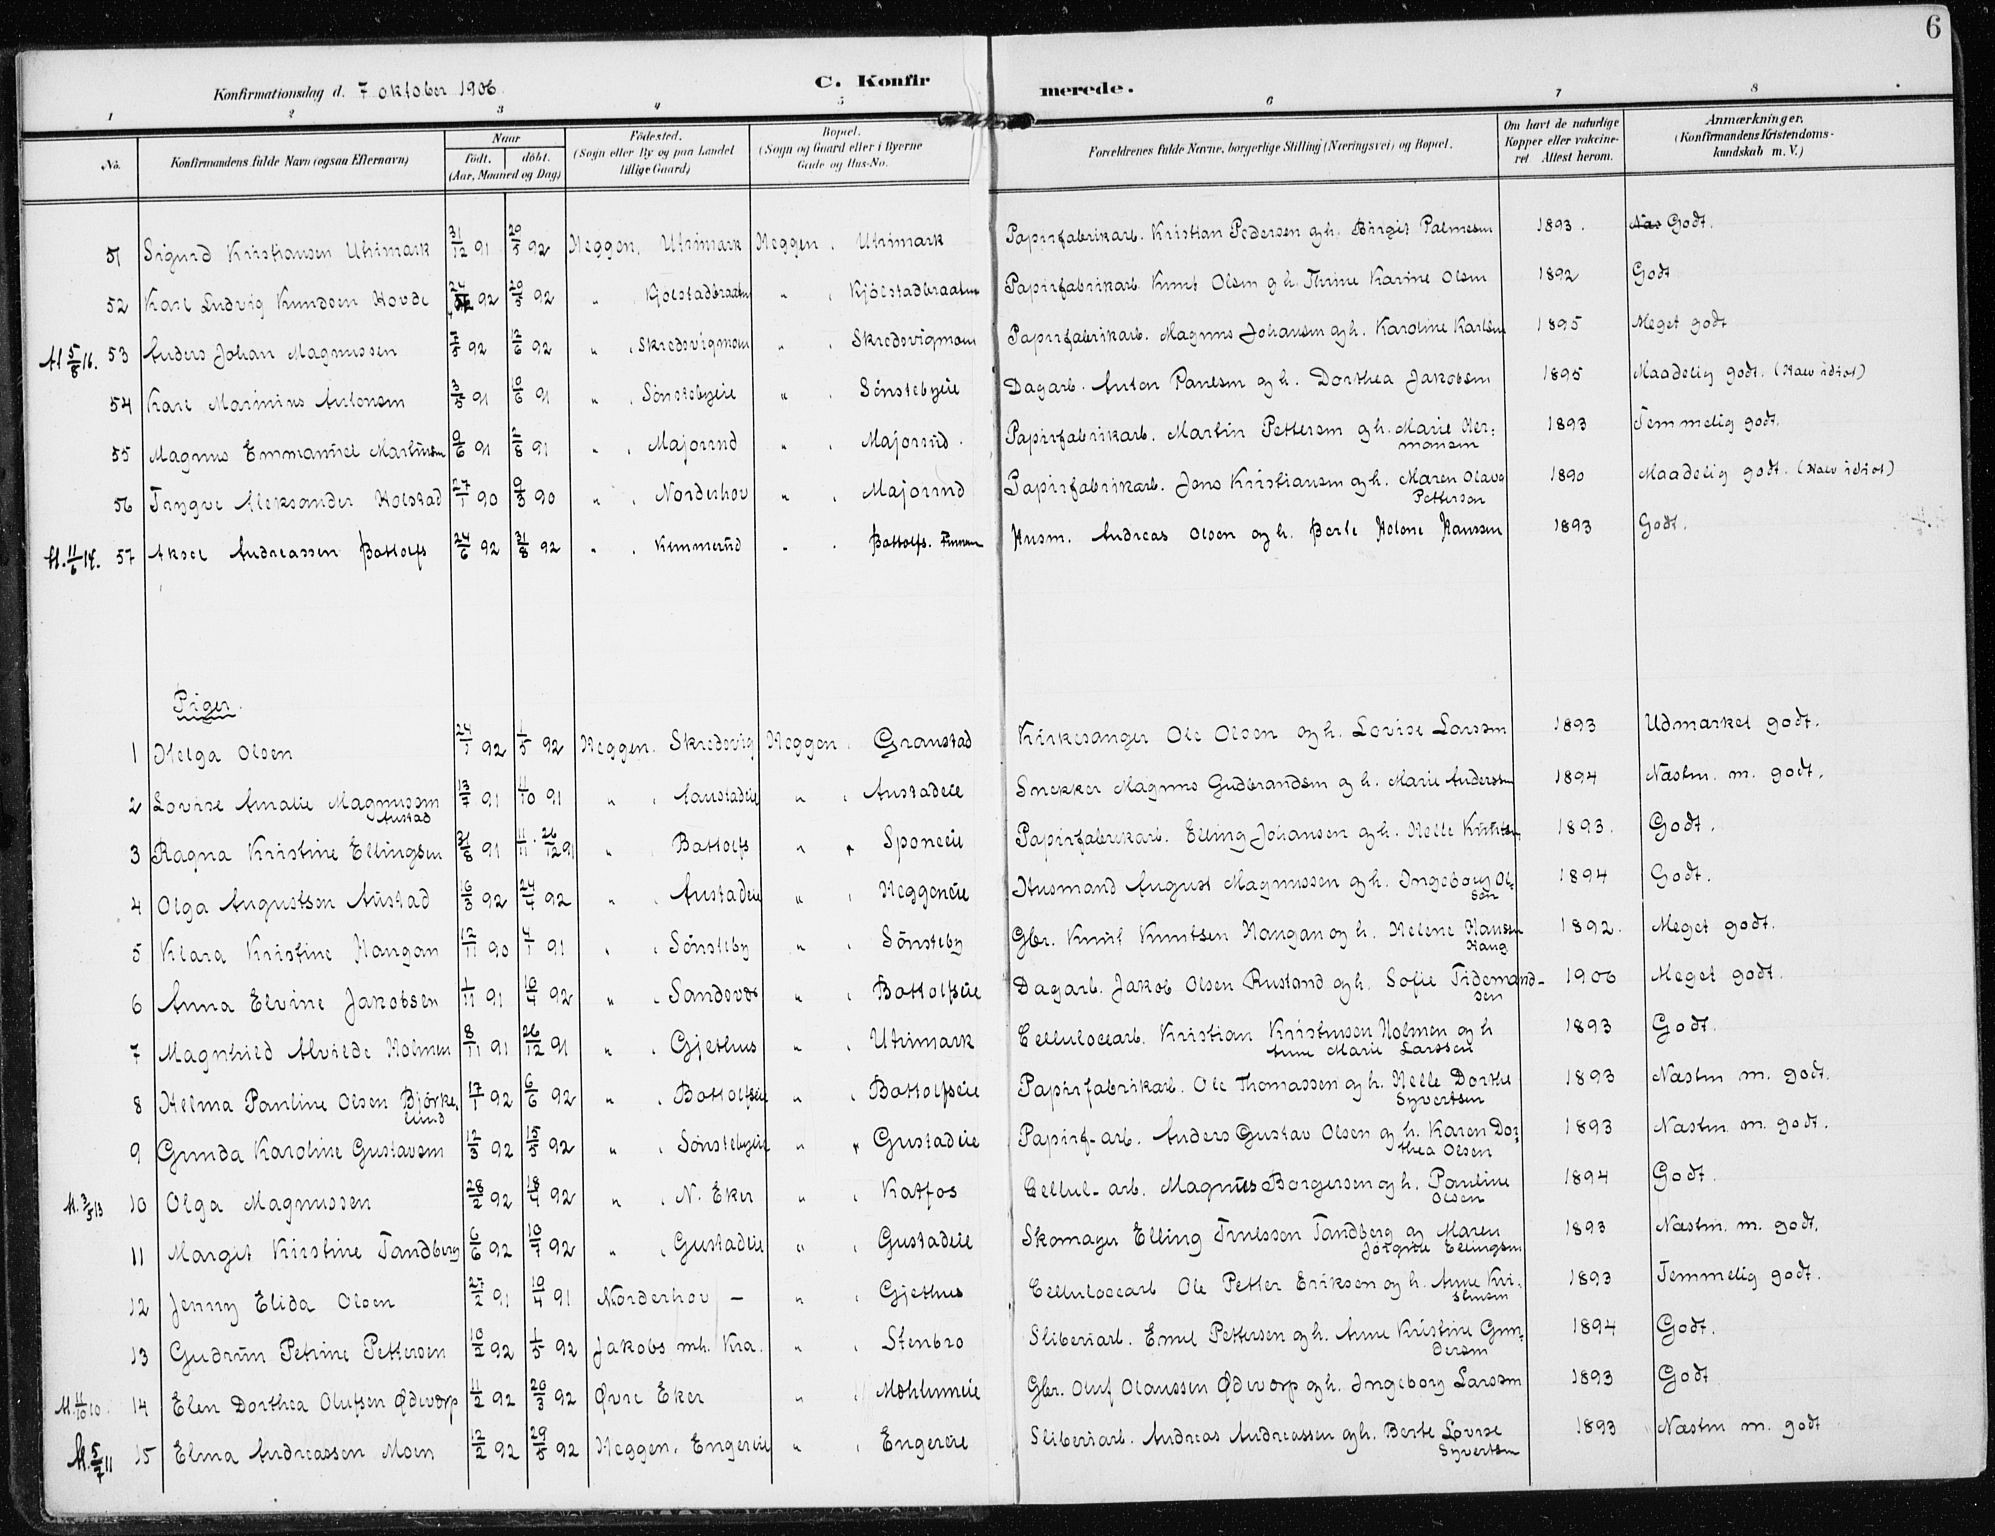 6
Konfirmationsdag d. 7 oktober 1906.
C. Konfirmerede.
1 2 3 4 5 6 7 8
No. Konfirmandens fulde Navn (ogsaa Efternavn) Naar født, døbt. (Aar, Maaned og Dag) Fødested. (Sogn eller By og paa Landet tillige Gaard) Bopæl. (Sogn og Gaard eller i Byerne Gade og Hus-No. Forældrenes fulde Navne, borgerlige Stilling (Næringsvei) og Bopæl. Om havt de naturlige Kopper eller vakcineret Attest herom. Anmærkninger. (Konfirmandens Kristendomskundskab m. V.)
51 Sigurd Kristiansen Utrimark 31/12 91 20/5 92 Heggen, Utrimark Heggen, Utrimark Papirfabrikarb. Kristian Pedersen og h. Birgit Palmesen 1893. Godt.
52 Karl Ludvig Kundsen Hovde 24/ 92 20/5 92 " , Kjölstadbraaten " , Kjölstadbraaten Papirfabrikarb. Knut Olsen og h. Thrine Karine Olsen 1892 Godt
M 5/8 16. 53 Anders Johan Magnussen 92 12/6 92 " , Skredsvigmoen , Skredsvigmoen Papirfabrikarb. Magnus Johansen og h. Karoline Karlsen 1895 Meget godt
54 Karl Marinius Antonsen 3/5 91 10/6 91 " , Sönstebyeie " , Sönstebyeie Dagarb. Anton Paulsen og h. Dorthea Jakobsen 1895 Maadelig godt. (Halv idiot)
55 Magnus Emmanuel Martinsen 9/6 91 2/8 91 " , Majorud " , Majorud. Papirfabrikarb. Martin Pettersen og h. Marie Hermansen 1893 Temmelig godt.
56 Trygve Aleksander Holstad 27/1 90 9/3 90 " , Norderhov " , Majorud Papirfabrikarb. Jens Kristiansen og h. Maren Olava Petterson 1890 Maadelig godt. (Halv idiot)
M. 11/6 14. 57 Aksel Andreassen Bottolfs 24/6 92 31/8 92 " , Kimmerud " , Bottolfs. Husm. Andreas Olsen og h. Berte Helene Hanssen 1893 Godt.
Piger.
1 Helga Olsen 24/1 92 1/5 92 Heggen, Skredsvig Heggen, Granstad Kirkesanger Ole Olsen og h. Lovise Larssen 1893 Udmærket godt.
2 Lovise Amalie Magnussen Austad 13/7 91 4/10 91 " , Austadeie " , Austadeie Snekker Magnus Gudbrandsen og h. Marie Anderssen 1894 Næstm. m. godt.
3 Ragna Kristine Ellingsen 31/8 91 11/11 . 26/12 91 " , Bottolfs " , Sponeeie Papirfabrikarb. Elling Johansen og h. Helle Knutsen 1893. Godt.
4 Olga Augustsen Austad 16/3 92 24/4 92 " , Austadeie " , Heggeneie Husmand August Magnussen og h. Ingeborg Olsen 1894 Godt.
5 Klara Kristine Haugan 12/11 90 4/1 91 " , Sönsteby " , Sönsteby Gbr. Knut Knutsen Haugan og h. Helene Hansen Haug 1892. Meget godt.
6 Anna Elvine Jakobsen 1/11 91 10/4 92 " , " , Bottolfseie Dagarb. Jakob Olsen Rustand og h. Sofie Tidemandsen 1906 Meget godt.
7 Magnhild Alvilde Holmen 8/11 91 26/12 91 " , Gjethus " , Utrimark Cellulosearb. Kristian Kristensen Holmen og h Anne Marie Larssen 1893 Godt.
8 Helma Pauline Olsen Björkelund 17/1 92 6/6 92 " , Bottolfseie " , Bottolfseie Papirfabrikarb. Ole Thomassen og h. Helle Dorthe Syvertsen 1893 Næstm m. godt.
9 Gunda Karoline Gustavsen 12/3 92 15/5 92 " , Sönstebyeie " , Gustadeie Papirf-arb. Anders Gustav Olsen og h. Karen Dorthea Olsen 1893 Næstm m. godt.
M. 3/5 13 10 Olga Magnussen 28/2 92 18/4 92 " , N. Eker " , Katfos Cellul-arb. Magnus Borgersen og h. Pauline Olsen 1894 Godt.
11 Margit Kristine Tandberg 6/6 92 10/7 92 " , Gustadeie " , Gustadeie Skomager Elling Truelsson Tandberg og Maren Jörgine Ellingsen 1893 Næstm. m. godt.
12 Jenny Elida Olsen 27/2 91 10/4 91 Norderhov — " , Gjethus Cellulosearb Ole Petter Eriksen og h. Anne Kristensen 1893 Temmelig godt.
13 Gudrun Petrine Pettersen 10/2 92 1/5 92 Jakobs mh. Kra. " , Stenbro Sliberiarb. Emil Pettersen og h. Anne Kristine Gundersen 1894 Godt.
M. 11/10 10. 14 Elen Dorthea Olufsen Ødevorp 11/2 92 20/3 92 Øvre Eker " , Mohlumeie Gbr. Oluf Olaussen Ødevorp og h. Ingeborg Larssen 1893 Godt.
M. 5/7 11 15 Elma Andreassen Moen 12/2 92 29/5 92 Heggen, Engereie " , Engereie Sliberiarb. Andreas Andreassen og h. Berte Lovise Syvertsen 1893 Næstm m. godt